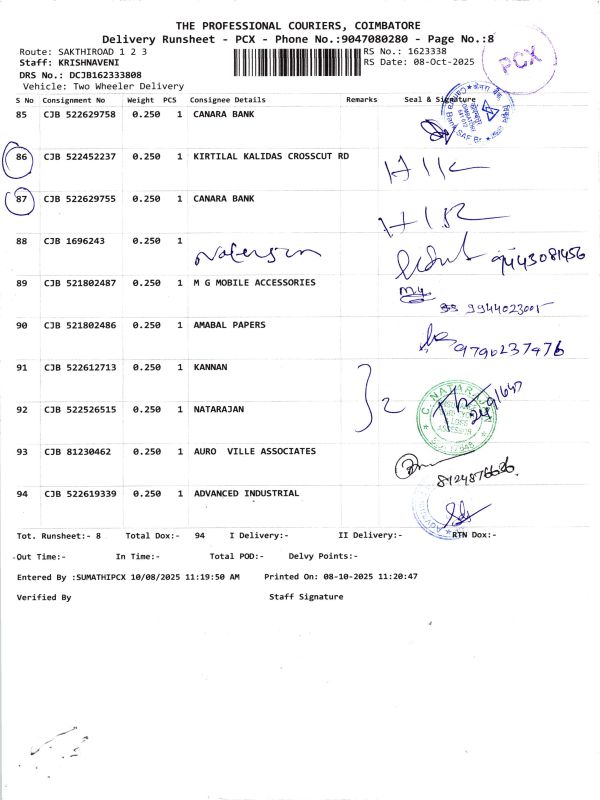 THE PROFESSIONAL COURIERS, COIMBATORE
Delivery Runsheet - PCX - Phone No.:9047080280 - Page No.:8
Route: SAKTHIROAD 1 2 3
RS No.: 1623338
Staff: KRISHNAVENI
RS Date: 08-Oct-2025
DRS No.: DCJB162333808
Vehicle: Two Wheeler Delivery
PCX
S No Consignment No Weight PCS Consignee Details Remarks Seal & Signature
85 CJB 522629758 0.250 1 CANARA BANK
86 CJB 522452237 0.250 1 KIRTILAL KALIDAS CROSSCUT RD
87 CJB 522629755 0.250 1 CANARA BANK
88 CJB 1696243 0.250 1 9443081456
89 CJB 521802487 0.250 1 M G MOBILE ACCESSORIES
9944023001
90 CJB 521802486 0.250 1 AMABAL PAPERS
9790237476
91 CJB 522612713 0.250 1 KANNAN
2
92 CJB 522526515 0.250 1 NATARAJAN
C. NATARAJAN
93 CJB 81230462 0.250 1 AURO VILLE ASSOCIATES
94 CJB 522619339 0.250 1 ADVANCED INDUSTRIAL
Tot. Runsheet:- 8 Total Dox:- 94 I Delivery:- II Delivery:- RTN Dox:-
Out Time:- In Time:- Total POD:- Delvy Points:-
Entered By :SUMATHIPCX 10/08/2025 11:19:50 AM Printed On: 08-10-2025 11:20:47
Verified By Staff Signature